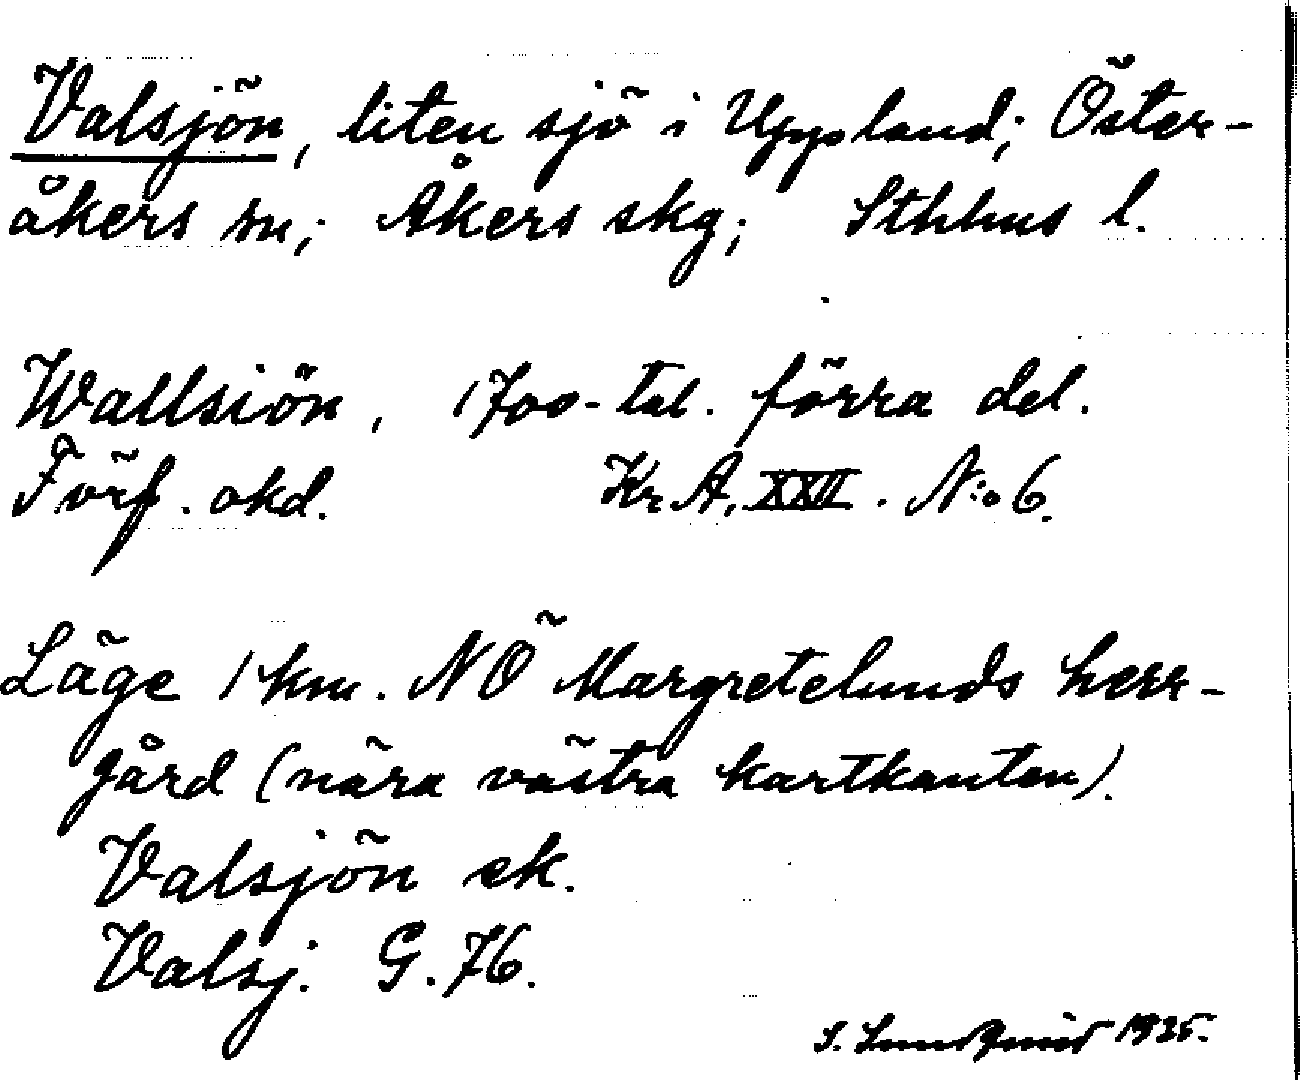 Valsjön, liten sjö i Uppland; Öster-
åkers sn; Åkers skg; Sthlms l.
Wallsiön, 1700-tal. förra del.
Förf. okd. Kr A, XXII. N:o 6.
Läge 1 km. NÖ Margretelunds herr-
gård (nära västra kartkanten).
Valsjön ek.
Valsj. G. 76.
S. Lundquist 1925.